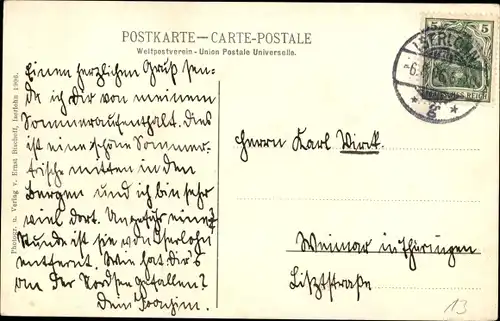 POSTKARTE — CARTE-POSTALE
Weltpostverein - Union Postale Universelle.
Einen herzlichen Gruß sen-
de ich Dir von meinem
Sommeraufenthalt. Dies
ist eine schöne Sommer-
frische mitten in den
Bergen und ich bin sehr
viel dort. Ungefähr eine
Stunde ist sie von Iserlohn
entfernt. Wie hat Dir's
an der Nordsee gefallen?
Dein Joachim.
Photogr. u. Verlag v. Ernst Bischoff, Iserlohn 1906.
5 5
ISERLOHN
DEUTSCHES REICH
* g *
Herrn Karl
Weimar in Thüringen
Lisztstraße
13